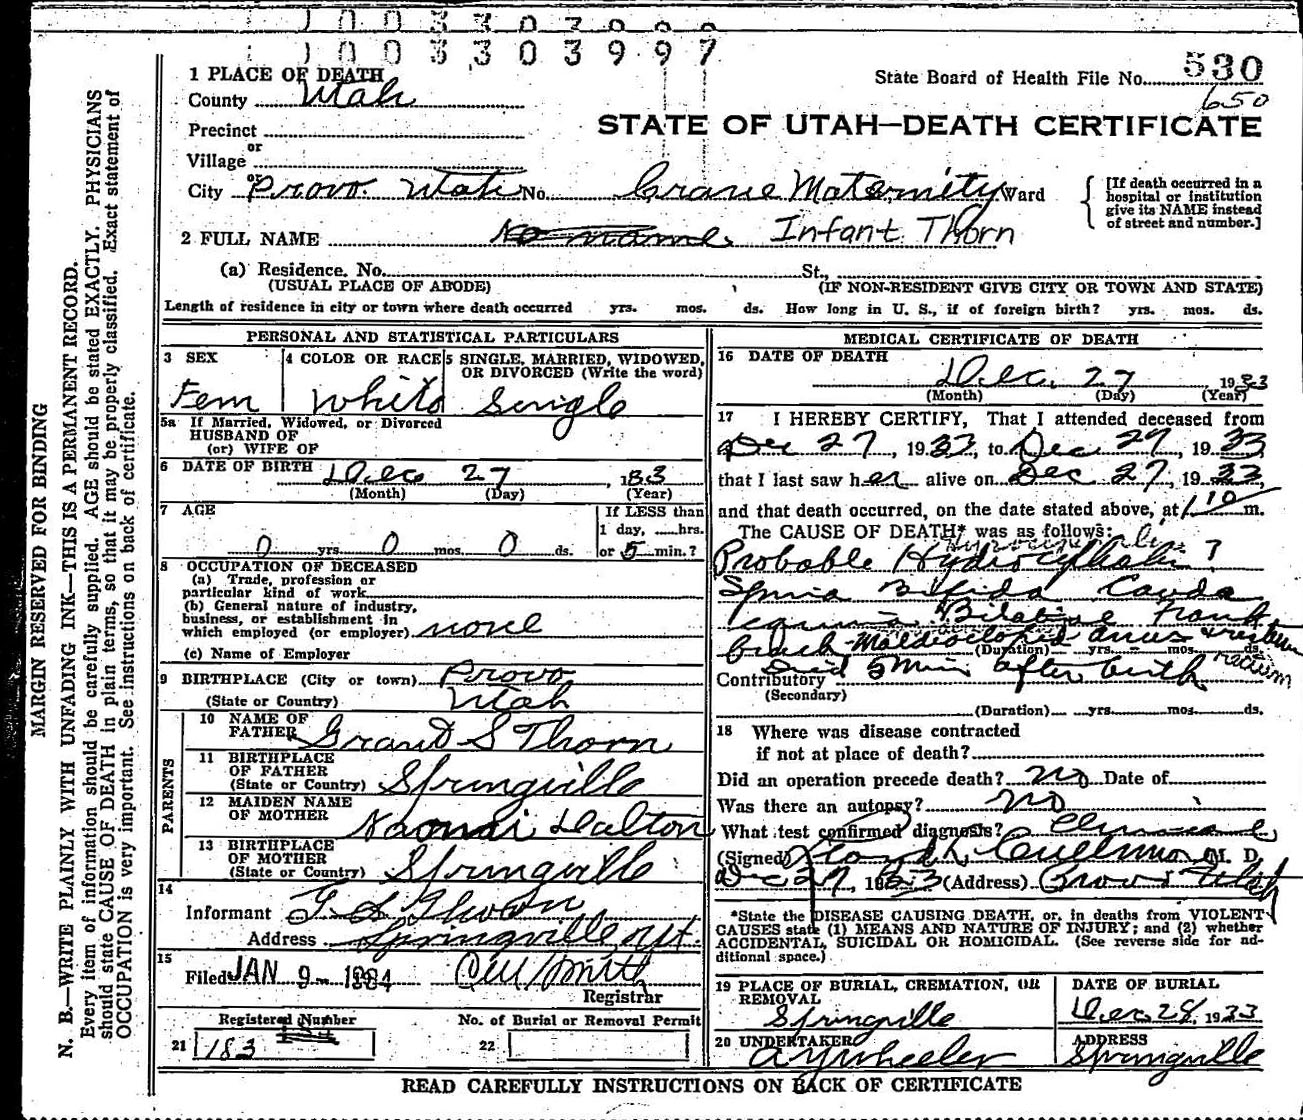 1003303997
530
650
1 PLACE OF DEATH
State Board of Health File No.
County Utah
STATE OF UTAH—DEATH CERTIFICATE
Precinct
or
Village
or
City Provo Utah No. Crane Maternity Ward
[If death occurred in a hospital or institution give its NAME instead of street and number.]
2 FULL NAME No name Infant Thorn
(a) Residence. No. St.,
(USUAL PLACE OF ABODE) (IF NON-RESIDENT GIVE CITY OR TOWN AND STATE)
Length of residence in city or town where death occurred yrs. mos. ds. How long in U. S., if of foreign birth? yrs. mos. ds.
MARGIN RESERVED FOR BINDING
N. B.—WRITE PLAINLY WITH UNFADING INK—THIS IS A PERMANENT RECORD.
Every item of information should be carefully supplied. AGE should be stated EXACTLY. PHYSICIANS
should state CAUSE OF DEATH in plain terms, so that it may be properly classified. Exact statement of
OCCUPATION is very important. See instructions on back of certificate.
PERSONAL AND STATISTICAL PARTICULARS
3 SEX
Fem
4 COLOR OR RACE
White
5 SINGLE, MARRIED, WIDOWED,
OR DIVORCED (Write the word)
Single
5a If Married, Widowed, or Divorced
HUSBAND OF
(or) WIFE OF
6 DATE OF BIRTH Dec 27, 33
(Month) (Day) (Year)
7 AGE
0 yrs. 0 mos. 0 ds.
If LESS than
1 day, hrs.
or 5 min.?
8 OCCUPATION OF DECEASED
(a) Trade, profession or
particular kind of work
(b) General nature of industry,
business, or establishment in
which employed (or employer) none
(c) Name of Employer
9 BIRTHPLACE (City or town) Provo
(State or Country) Utah
PARENTS
10 NAME OF
FATHER Grant S Thorn
11 BIRTHPLACE
OF FATHER
(State or Country) Springville
12 MAIDEN NAME
OF MOTHER Naomi Dalton
13 BIRTHPLACE
OF MOTHER
(State or Country) Springville
14
Informant
Address Springville Ut.
15
Filed JAN 9- 1934
Registrar
Registered Number
21 183
No. of Burial or Removal Permit
22
MEDICAL CERTIFICATE OF DEATH
16 DATE OF DEATH
Dec. 27 1933
(Month) (Day) (Year)
17 I HEREBY CERTIFY, That I attended deceased from
Dec 27, 1933, to Dec 27, 1933
that I last saw her alive on Dec 27, 1933,
and that death occurred, on the date stated above, at 1 10 m.
The CAUSE OF DEATH* was as follows:
Probable ?
Spina Bifida Cauda
Equina Frank
breech anus rectum
(Duration) yrs. mos. ds.
Contributory Died 5 min after birth
(Secondary)
(Duration) yrs. mos. ds.
18 Where was disease contracted
if not at place of death?
Did an operation precede death? no Date of
Was there an autopsy? no
What test confirmed diagnosis? Clinical
(Signed) M. D.
Dec 27, 1933 (Address) Provo Utah
*State the DISEASE CAUSING DEATH, or, in deaths from VIOLENT
CAUSES state (1) MEANS AND NATURE OF INJURY; and (2) whether
ACCIDENTAL, SUICIDAL OR HOMICIDAL. (See reverse side for ad-
ditional space.)
19 PLACE OF BURIAL, CREMATION, OR
REMOVAL
Springville
DATE OF BURIAL
Dec 28, 1933
20 UNDERTAKER
A Y Wheeler
ADDRESS
Springville
READ CAREFULLY INSTRUCTIONS ON BACK OF CERTIFICATE